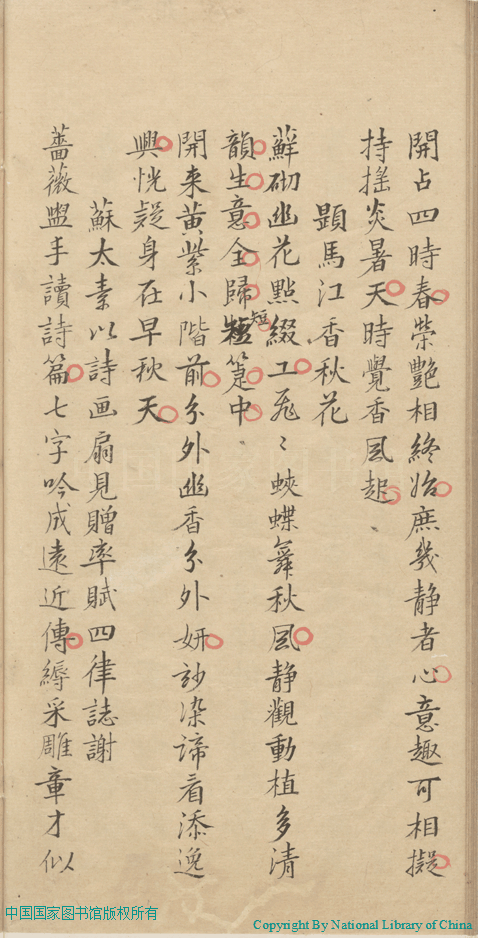 開占四時春榮艷相終始庶幾静者心意趣可相擬
持搖炎暑天時覺香風起
題馬江香秋花
蘚砌幽花點綴工飛〻蛺蝶舞秋風静觀動植多清
韻生意全歸短箑中
開来黄紫小階前分外幽香分外妍玅染諦看添逸
興恍疑身在早秋天
蘇太素以詩画扇見贈率賦四律誌謝
薔薇盥手讀詩篇七字吟成遠近傳縟采雕章才似
中国国家图书馆版权所有
Copyright By National Library of China